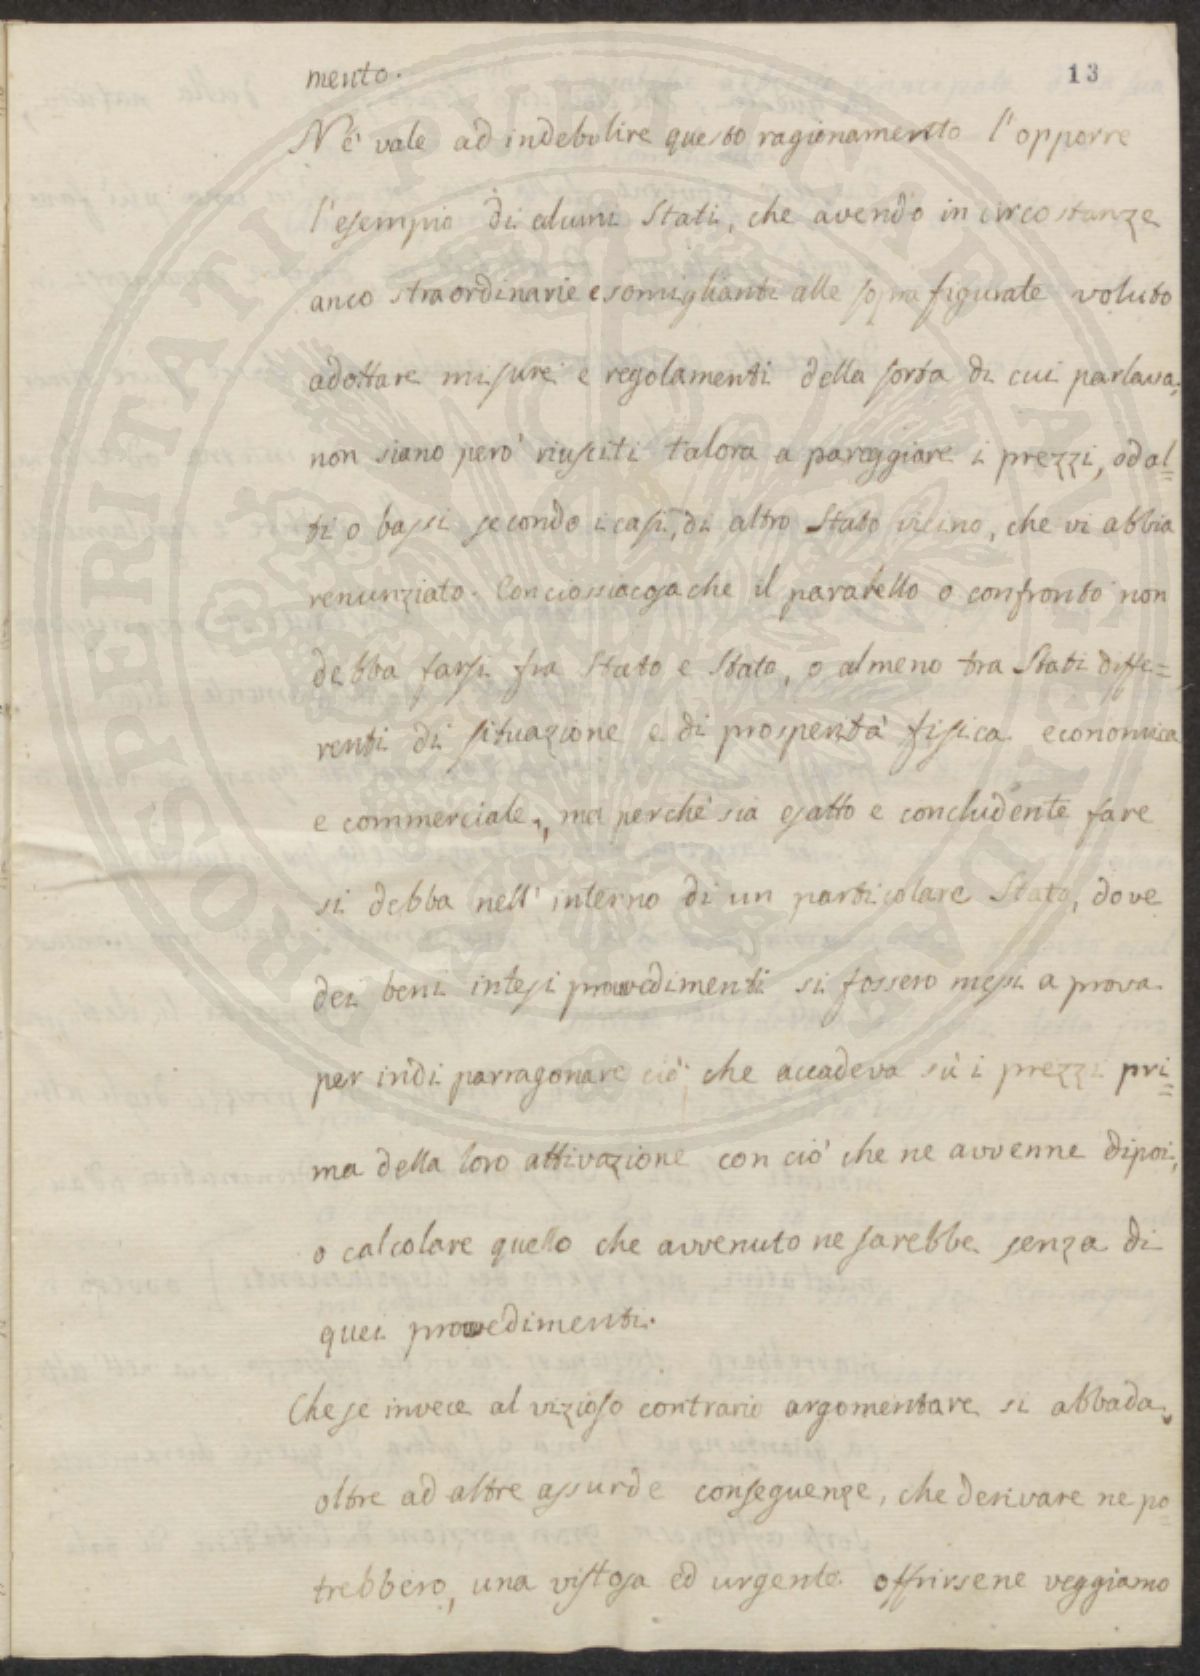 13
mento.
Nè vale ad indebolire questo ragionamento l'opporre
l'esempio di alcuni Stati, che avendo in circostanze
anco straordinarie e somiglianti alle sopra figurate voluto
adottare misure e regolamenti della sorta di cui parlava,
non siano però riusciti talora a pareggiare i prezzi, od al=
ti o bassi secondo i casi, di altro Stato vicino, che vi abbia
renunziato. Conciossiacosache il paralello o confronto non
debba farsi fra Stato e Stato, o almeno tra Stati diffe=
renti di situazione e di prosperità fisica economica
e commerciale, ma perchè sia esatto e concludente fare
si debba nell'interno di un particolare Stato, dove
dei beni intesi provvedimenti si fossero messi a prova
per indi parragonare ciò che accadeva sù i prezzi pri=
ma della loro attivazione con ciò che ne avvenne dipoi,
o calcolare quello che avvenuto ne sarebbe senza di
quei provvedimenti.
Che se invece al vizioso contrario argomentare si abbada,
oltre ad altre assurde conseguenze, che derivare ne po=
trebbero, una vistosa ed urgente offrirsene veggiamo
PROSPERITATI PUBLICAE AUGENDAE